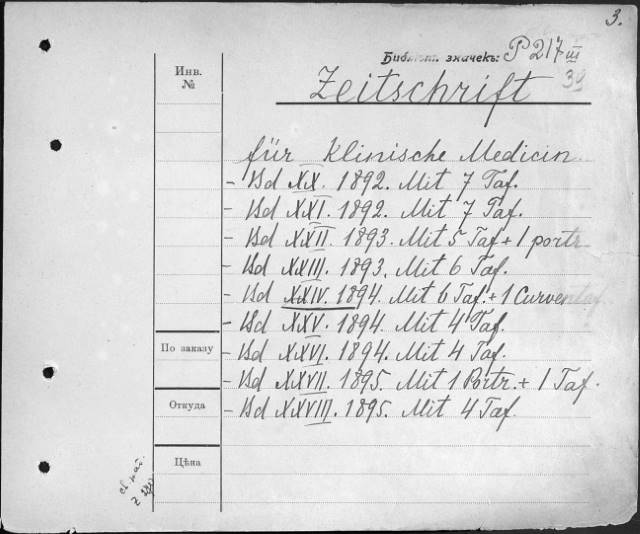 3.
Библіот. значекъ: P 217 III
39
Инв.
№
Zeitschrift
für Klinische Medicin
- Bd XX. 1892. Mit 7 Taf.
- Bd XXI. 1892. Mit 7 Taf.
- Bd XXII. 1893. Mit 5 Taf + 1 portr
- Bd XXIII. 1893. Mit 6 Taf.
- Bd XXIV. 1894. Mit 6 Taf. + 1 Curventaf
- Bd XXV. 1894. Mit 4 Taf.
По заказу
- Bd XXVI. 1894. Mit 4 Taf.
- Bd XXVII. 1895. Mit 1 Portr. + 1 Taf.
Откуда
- Bd XXVIII. 1895. Mit 4 Taf.
Цѣна